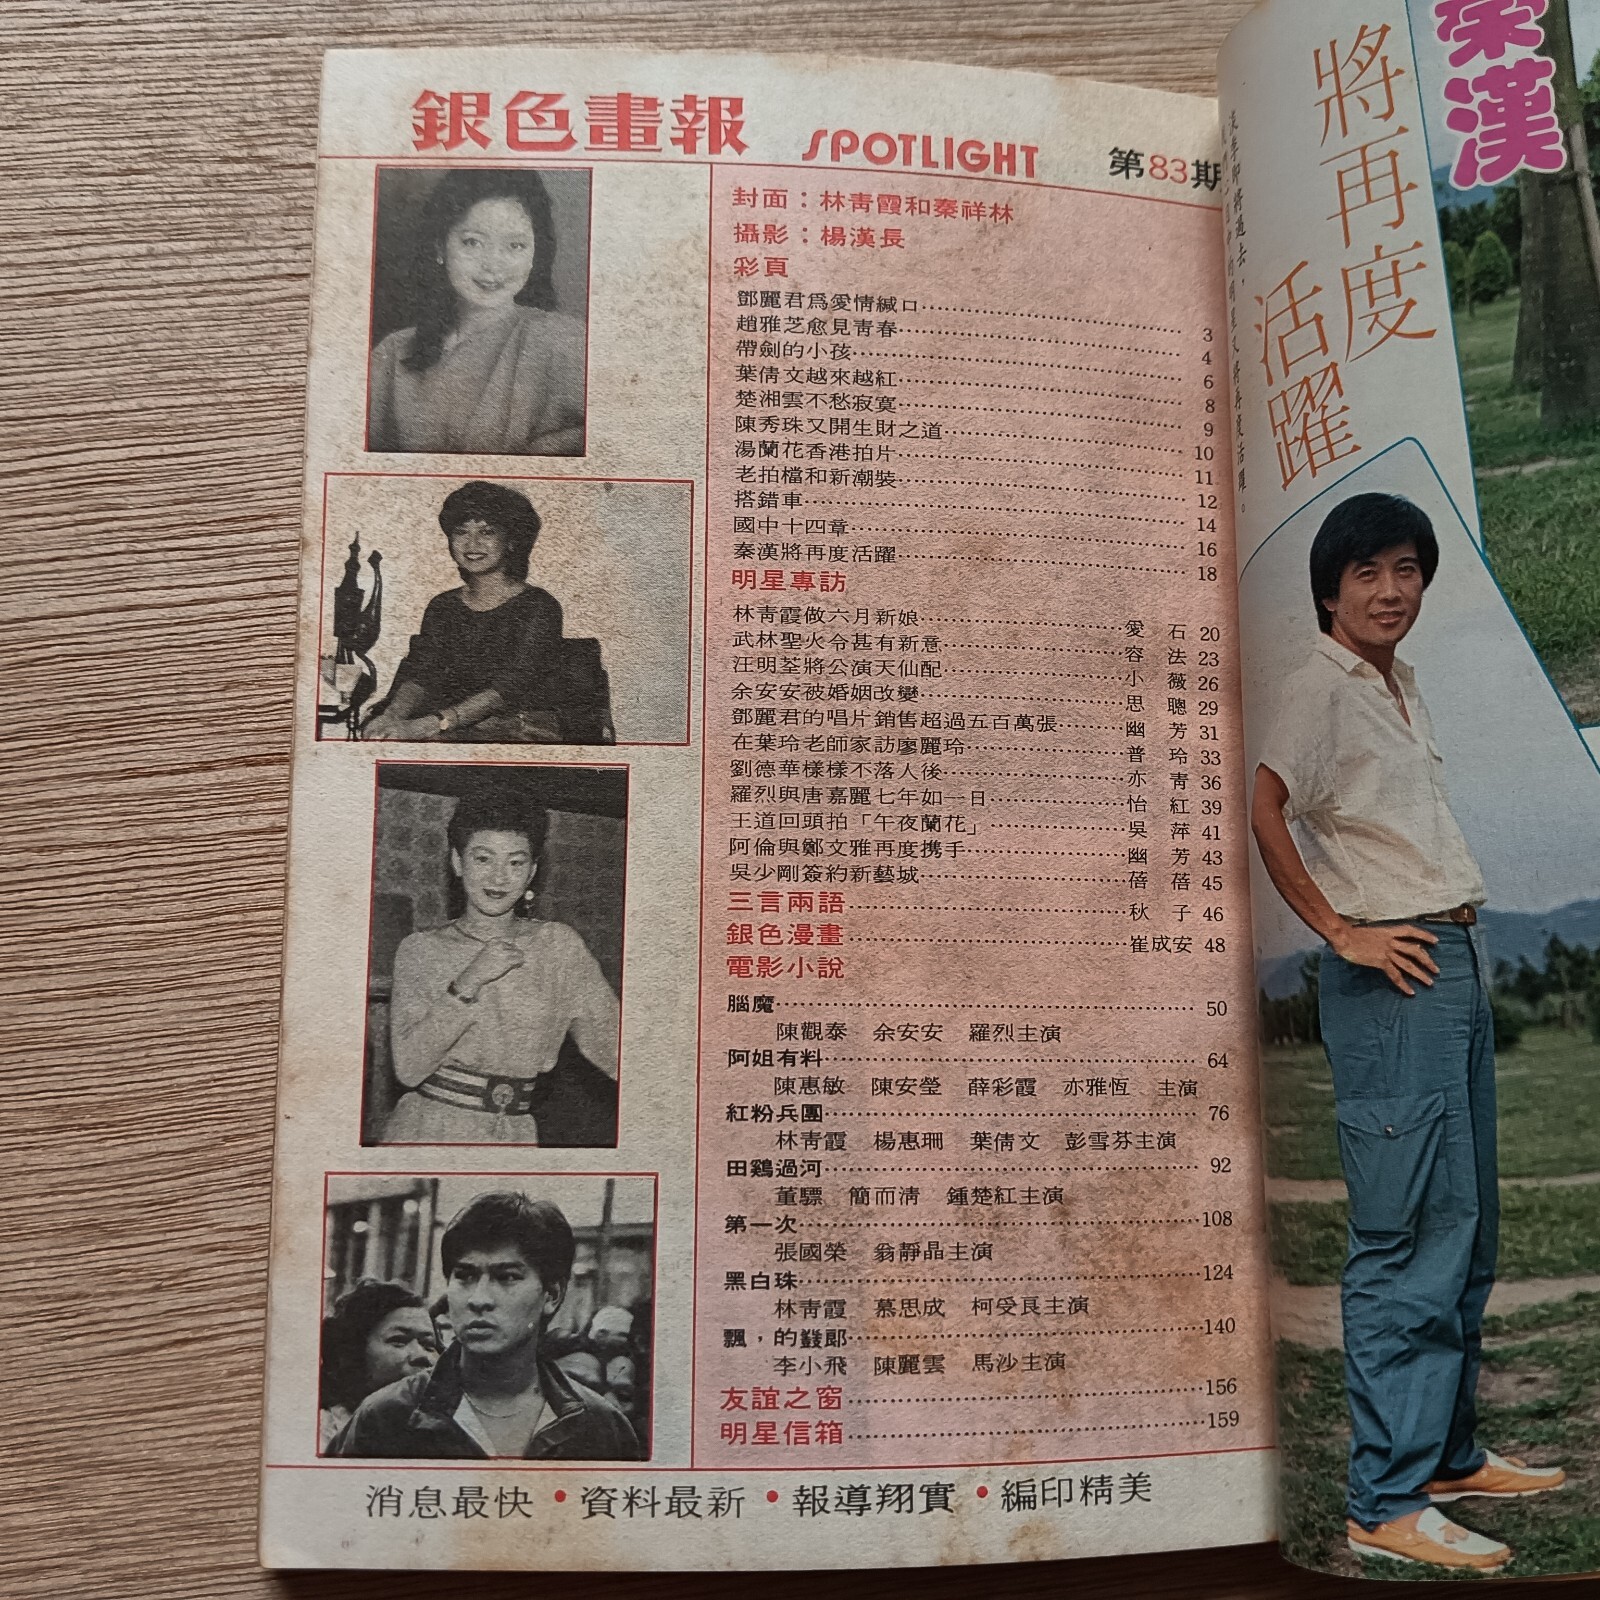 銀色畫報 SPOTLIGHT 第83期
封面：林青霞和秦祥林
攝影：楊漢長
彩頁
鄧麗君為愛情緘口 3
趙雅芝愈見青春 4
帶劍的小孩 6
葉倩文越來越紅 8
楚湘雲不愁寂寞 9
陳秀珠又開生財之道 10
湯蘭花香港拍片 11
老拍檔和新潮裝 12
搭錯車 14
國中十四章 16
秦漢將再度活躍 18
明星專訪
林青霞做六月新娘 愛石 20
武林聖火令甚有新意 容法 23
汪明荃將公演天仙配 小薇 26
余安安被婚姻改變 思聰 29
鄧麗君的唱片銷售超過五百萬張 幽芳 31
在葉玲老師家訪廖麗玲 普玲 33
劉德華樣樣不落人後 亦青 36
羅烈與唐嘉麗七年如一日 怡紅 39
王道回頭拍「午夜蘭花」 吳萍 41
阿倫與鄭文雅再度携手 幽芳 43
吳少剛簽約新藝城 蓓蓓 45
三言兩語 秋子 46
銀色漫畫 崔成安 48
電影小說
腦魔 50
陳觀泰 余安安 羅烈主演
阿姐有料 64
陳惠敏 陳安瑩 薛彩霞 亦雅恆 主演
紅粉兵團 76
林青霞 楊惠珊 葉倩文 彭雪芬主演
田鷄過河 92
董驃 簡而清 鍾楚紅主演
第一次 108
張國榮 翁靜晶主演
黑白珠 124
林青霞 慕思成 柯受良主演
飄，的士郎 140
李小飛 陳麗雲 馬沙主演
友誼之窗 156
明星信箱 159
消息最快•資料最新•報導翔實•編印精美
秦漢
將再度
活躍